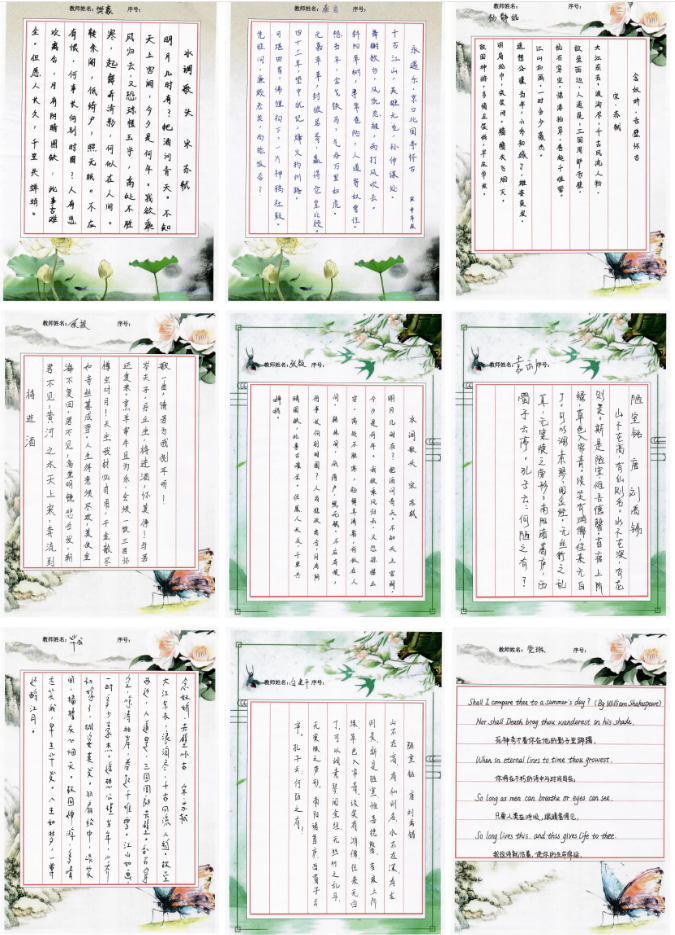 教师姓名： 序号：
水调歌头 宋 苏轼
明月几时有？把酒问青天。不知
天上宫阙，今夕是何年。我欲乘
风归去，又恐琼楼玉宇，高处不胜
寒，起舞弄清影，何似在人间。
转朱阁，低绮户，照无眠。不应
有恨，何事长向别时圆？人有悲
欢离合，月有阴晴圆缺，此事古难
全。但愿人长久，千里共婵娟。
教师姓名： 序号：
永遇乐·京口北固亭怀古
宋 辛弃疾
千古江山，英雄无觅，孙仲谋处。
舞榭歌台，风流总被，雨打风吹去。
斜阳草树，寻常巷陌，人道寄奴曾住。
想当年，金戈铁马，气吞万里如虎。
元嘉草草，封狼居胥，赢得仓皇北顾。
四十三年，望中犹记，烽火扬州路。
可堪回首，佛狸祠下，一片神鸦社鼓。
凭谁问：廉颇老矣，尚能饭否？
教师姓名： 序号：
念奴娇·赤壁怀古
宋·苏轼
大江东去，浪淘尽，千古风流人物。
故垒西边，人道是，三国周郎赤壁。
乱石穿空，惊涛拍岸，卷起千堆雪。
江山如画，一时多少豪杰。
遥想公瑾当年，小乔初嫁了，雄姿英发。
羽扇纶巾，谈笑间，樯橹灰飞烟灭。
故国神游，多情应笑我，早生华发。
教师姓名： 序号：
将进酒
君不见，黄河之水天上来，奔流到
海不复回。君不见，高堂明镜悲白发，朝
如青丝暮成雪。人生得意须尽欢，莫使金
樽空对月！天生我材必有用，千金散尽
还复来。烹羊宰牛且为乐，会须一饮三百杯
岑夫子，丹丘生，将进酒，杯莫停！与君
歌一曲，请君为我倾耳听！
教师姓名： 序号：
水调歌头 宋 苏轼
明月几时有？把酒问青天。不知天上宫阙，
今夕是何年。我欲乘风归去，又恐琼楼玉
宇，高处不胜寒。起舞弄清影，何似在人
间。转朱阁，低绮户，照无眠。不应有恨，
何事长向别时圆？人有悲欢离合，月有阴
晴圆缺，此事古难全。但愿人长久，千里共
婵娟。
教师姓名： 序号：
陋室铭 唐 刘禹锡
山不在高，有仙则名。水不在深，有龙
则灵。斯是陋室，惟吾德馨。苔痕上阶
绿，草色入帘青。谈笑有鸿儒，往来无白
丁。可以调素琴，阅金经。无丝竹之乱
耳，无案牍之劳形。南阳诸葛庐，西
蜀子云亭。孔子云：何陋之有？
教师姓名： 序号：
念奴娇·赤壁怀古 宋 苏轼
大江东去，浪淘尽，千古风流人物。故垒
西边，人道是，三国周郎赤壁。乱石穿
空，惊涛拍岸，卷起千堆雪。江山如画，
一时多少豪杰。遥想公瑾当年，小乔
初嫁了，雄姿英发。羽扇纶巾，谈笑
间，樯橹灰飞烟灭。故国神游，多情
应笑我，早生华发。人生如梦，一尊
还酹江月。
教师姓名： 序号：
陋室铭 唐 刘禹锡
山不在高，有仙则名。水不在深，有龙
则灵。斯是陋室，惟吾德馨。苔痕上阶
绿，草色入帘青。谈笑有鸿儒，往来无白
丁。可以调素琴，阅金经。无丝竹之乱耳，
无案牍之劳形。南阳诸葛庐，西蜀子云
亭。孔子云：何陋之有？
教师姓名： 序号：
Shall I compare thee to a summer's day? (By William Shakespeare)
Nor shall Death brag thou wanderest in his shade,
死神夸不着你在他的影子里踯躅，
When in eternal lines to time thou growest.
你将在不朽的诗中与时间同在；
So long as men can breathe or eyes can see.
只要人类在呼吸，眼睛看得见，
So long lives this, and this gives life to thee.